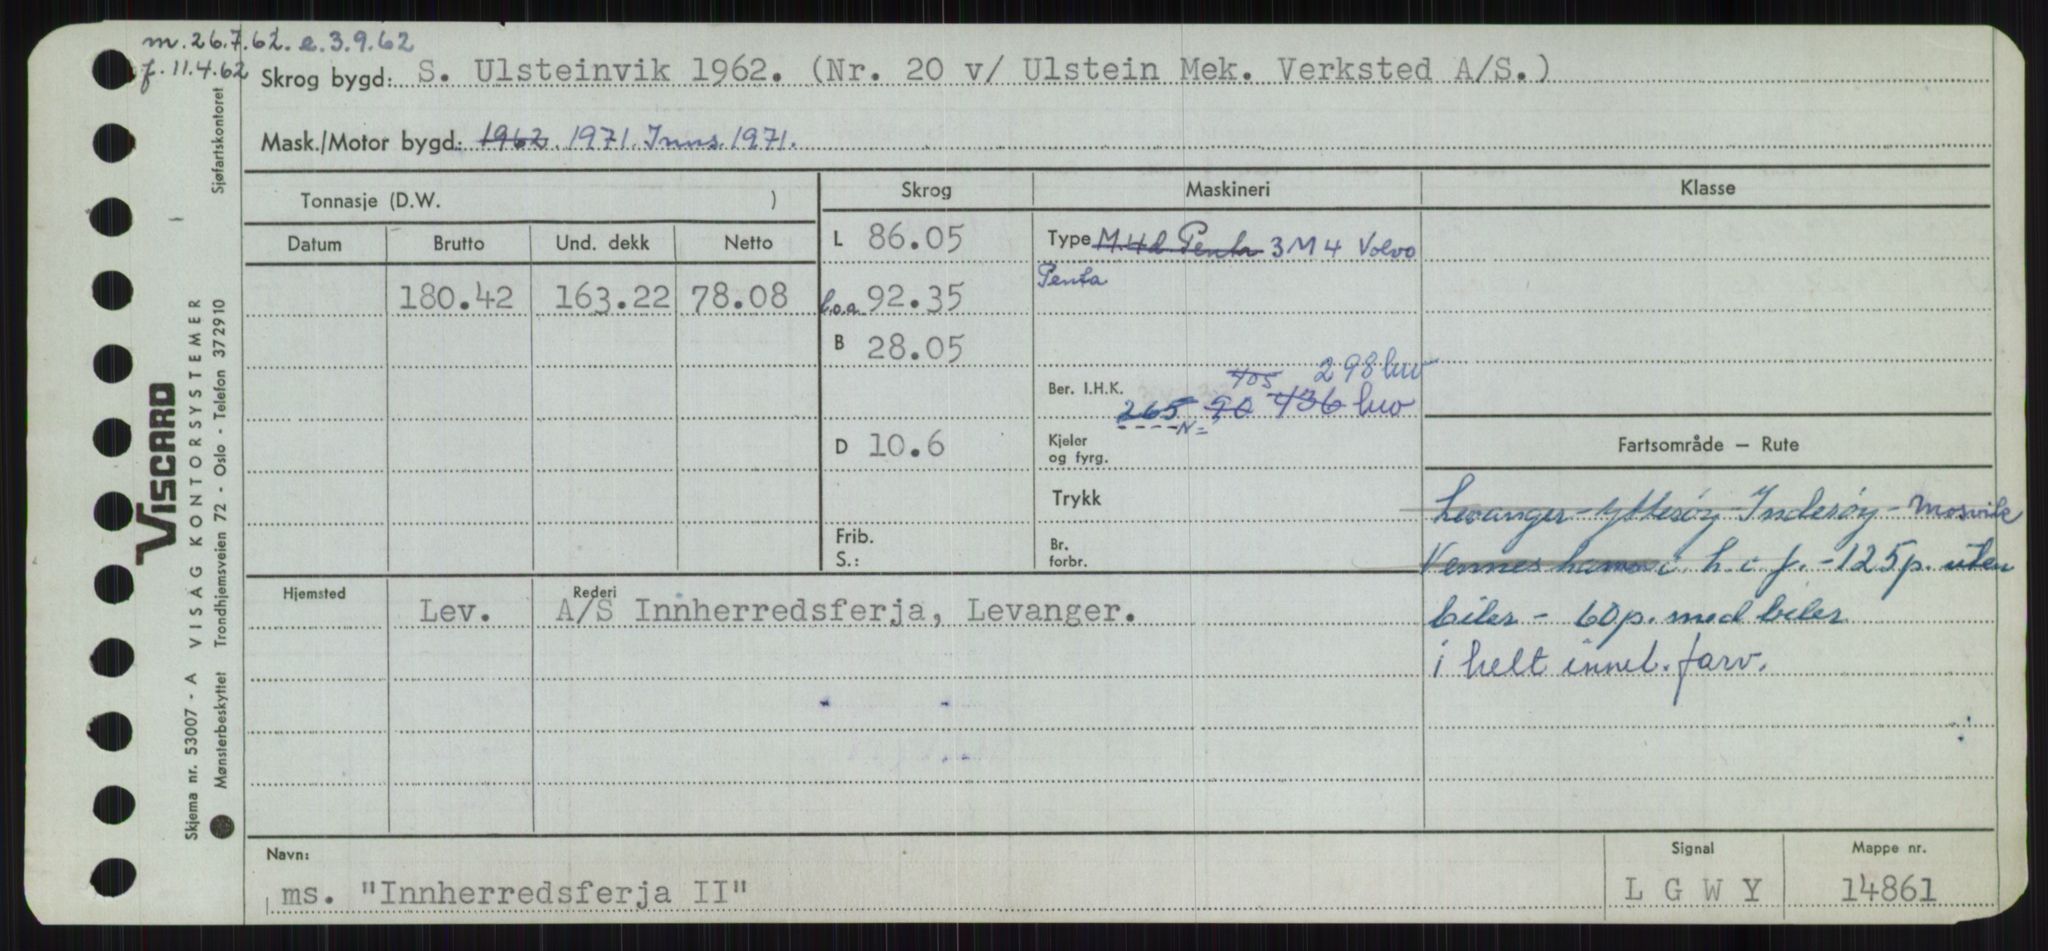 m. 26.7.62. e. 3.9.62
f. 11.4.62
Skrog bygd: S. Ulsteinvik 1962. (Nr. 20 v/ Ulstein Mek. Verksted A/S.)
Mask./Motor bygd: 1962. 1971. Inns. 1971.
Tonnasje (D.W. )
Skrog
Maskineri
Klasse
Datum Brutto Und. dekk Netto
L 86.05
Type M.4d. Penta 3 M 4 Volvo
Penta
180.42 163.22 78.08
l.o.a. 92.35
B 28.05
405 298 hw
Ber. I.H.K. 265 90 436 hw
N=
D 10.6
Kjeler
og fyrg.
Fartsområde – Rute
Trykk
Levanger - Ytterøy - Inderøy - Mosvik
Frib.
S.:
Br.
forbr.
Venneshamn i h. i f. - 125 p. uten
biler - 60 p. med biler
i helt innel. farv.
Hjemsted
Rederi
Lev. A/S Innherredsferja, Levanger.
Navn:
ms. "Innherredsferja II"
Signal
L G W Y
Mappe nr.
14861
Sjøfartskontoret
VISCARD
Skjema nr. 53007 - A VISAG KONTORSYSTEMER
Mønsterbeskyttet Trondhjemsveien 72 - Oslo - Telefon 372910